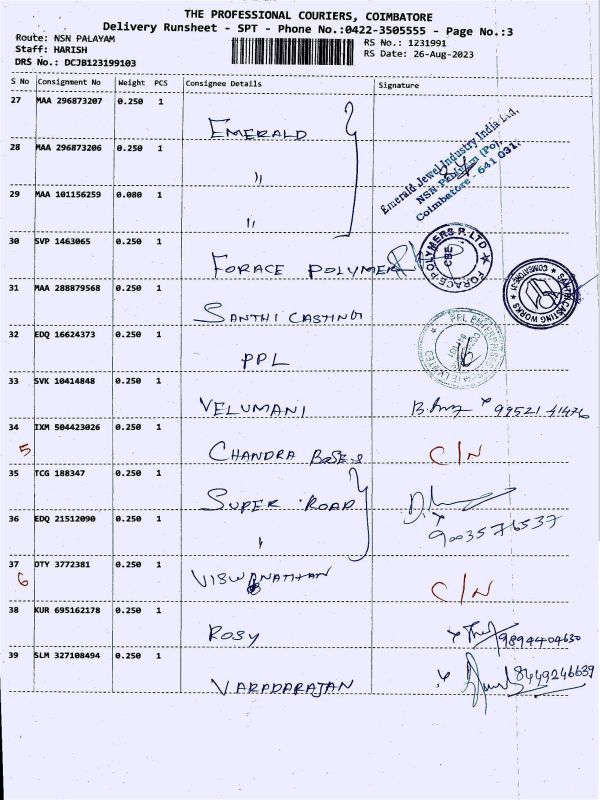 THE PROFESSIONAL COURIERS, COIMBATORE
Delivery Runsheet - SPT - Phone No.:0422-3505555 - Page No.:3
Route: NSN PALAYAM
RS No.: 1231991
Staff: HARISH
RS Date: 26-Aug-2023
DRS No.: DCJB123199103
S No Consignment No Weight PCS Consignee Details Signature
27 MAA 296873207 0.250 1 EMERALD
28 MAA 296873206 0.250 1 "
Emerald Jewel Industry India Ltd,
NSN Palayam (Po),
Coimbatore - 641 031.
29 MAA 101156259 0.080 1 "
30 SVP 1463065 0.250 1 FORACE POLYMER
FORACE POLYMERS P. LTD
CBE
31 MAA 288879568 0.250 1 SANTHI CASTING
SANTHI CASTING WORKS
32 EDQ 16624373 0.250 1 PPL
33 SVK 10414848 0.250 1 VELUMANI 99521 41476
34 IXM 504423026 0.250 1 CHANDRA BOSE C/N
5
35 TCG 188347 0.250 1 SUPER ROAD
36 EDQ 21512090 0.250 1 " 9003576537
37 OTY 3772381 0.250 1 VISWANATHAN C/N
6
38 KUR 695162178 0.250 1 ROSY 9894404630
39 SLM 327108494 0.250 1 VARADARAJAN 8449246639